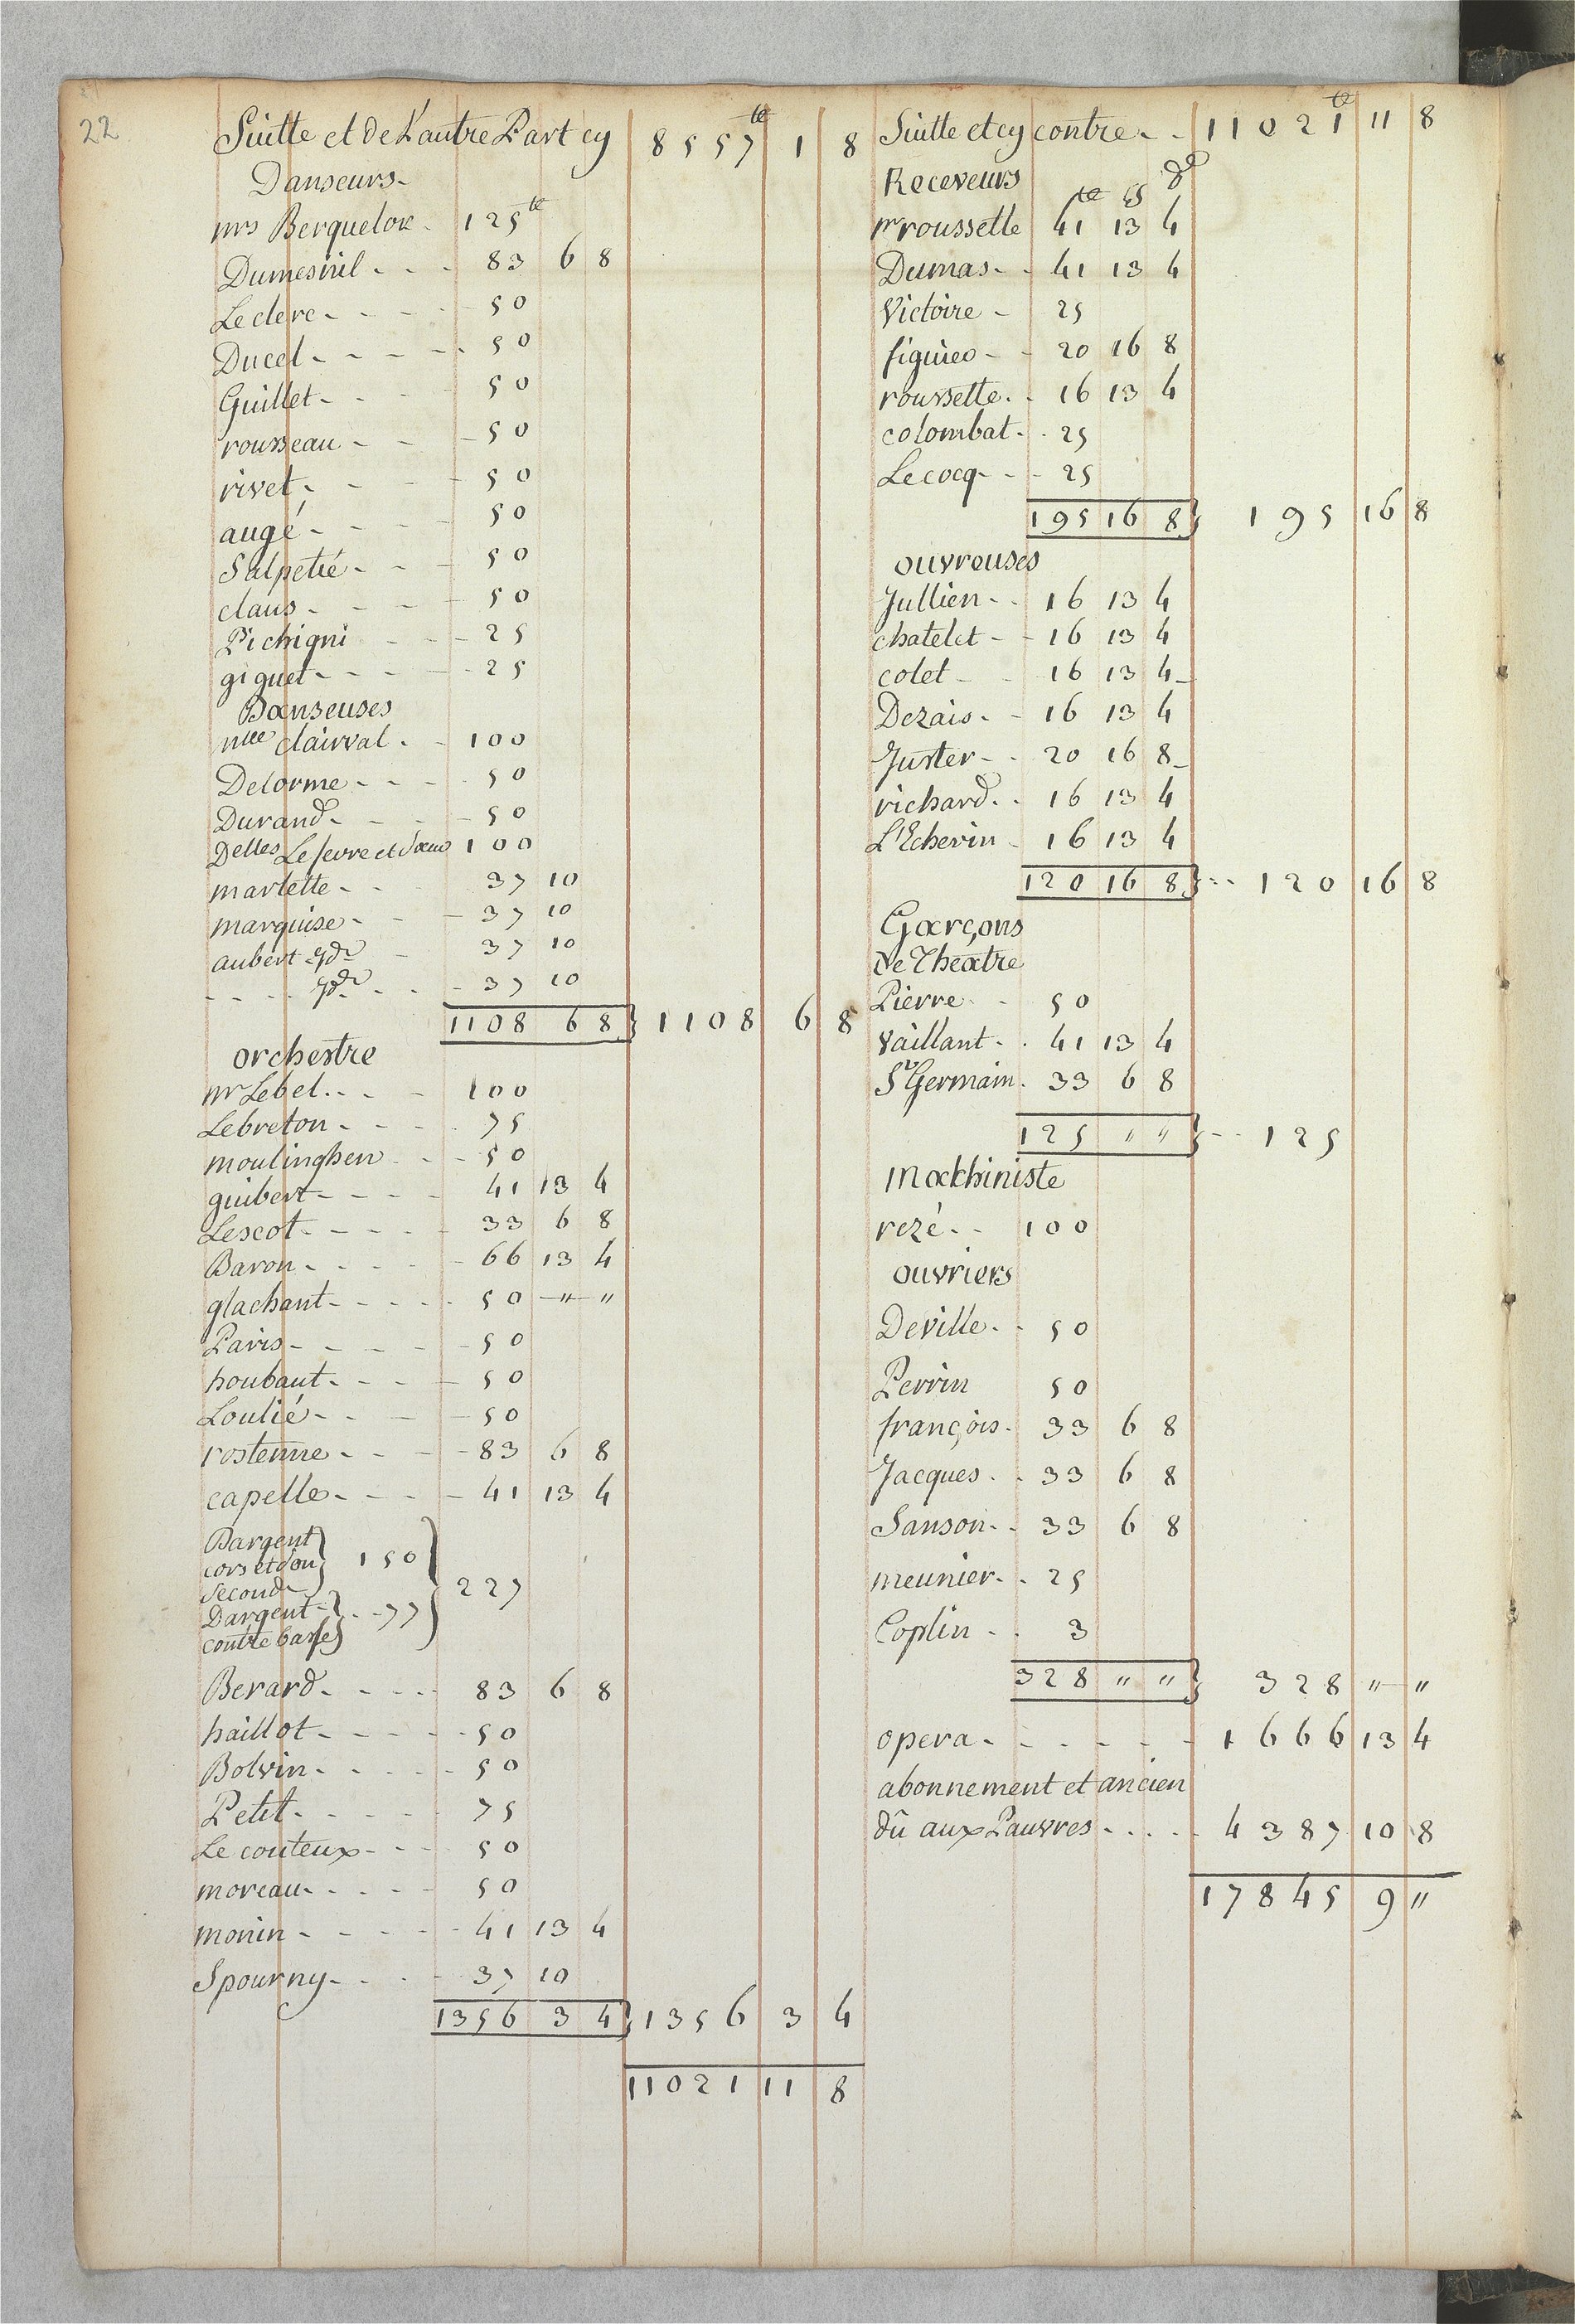 22
Suitte et de L'autre Part cy 8557 tt 1 8
Danseurs
mrs Berquelor 125 tt
Dumesnil 83 6 8
Leclerc 50
Ducel 50
Guillet 50
rousseau 50
rivet 50
augé 50
Salpetié 50
claus 50
Pichigni 25
giguet 25
Danseuses
mlle clairval 100
Delorme 50
Durand 50
Delles Lefevre et sœur 100
martette 37 10
marquise 37 10
aubert 37 10
37 10
1108 6 8 } 1108 6 8
orchestre
mr Lebel 100
Lebreton 75
moulinghen 50
guibert 41 13 4
Lescot 33 6 8
Baron 66 13 4
glachant 50 " "
Paris 50
houbaut 50
Loulié 50
rostenne 83 6 8
capelle 41 13 4
Dargent
cors et son } 150
second
Dargent } 77 } 227
contre basse
Berard 83 6 8
haillot 50
Bolvin 50
Petit 75
Le couteux 50
moreau 50
monin 41 13 4
Spourny 37 10
1356 3 4 } 1356 3 4
11021 11 8
Suitte et cy contre 11021 tt 11 8
Receveurs
mr roussette 41 tt 13 s 4 d
Dumas 41 13 4
Victoire 25
figuieo 20 16 8
roussette 16 13 4
colombat 25
Lecocq 25
195 16 8 } 195 16 8
ouvreuses
Jullien 16 13 4
chatelet 16 13 4
colet 16 13 4
Dezais 16 13 4
Juster 20 16 8
richard 16 13 4
L'Echevin 16 13 4
120 16 8 } 120 16 8
Garçons
de Theatre
Pierre 50
vaillant 41 13 4
St Germain 33 6 8
125 " " } 125
Mackhiniste
rezé 100
ouvriers
Deville 50
Perrin 50
françois 33 6 8
Jacques 33 6 8
Sanson 33 6 8
meunier 25
Coplin 3
328 " " } 328 " "
opera 1666 13 4
abonnement et ancien
dû aux Pauvres 4387 10 8
17845 9 "